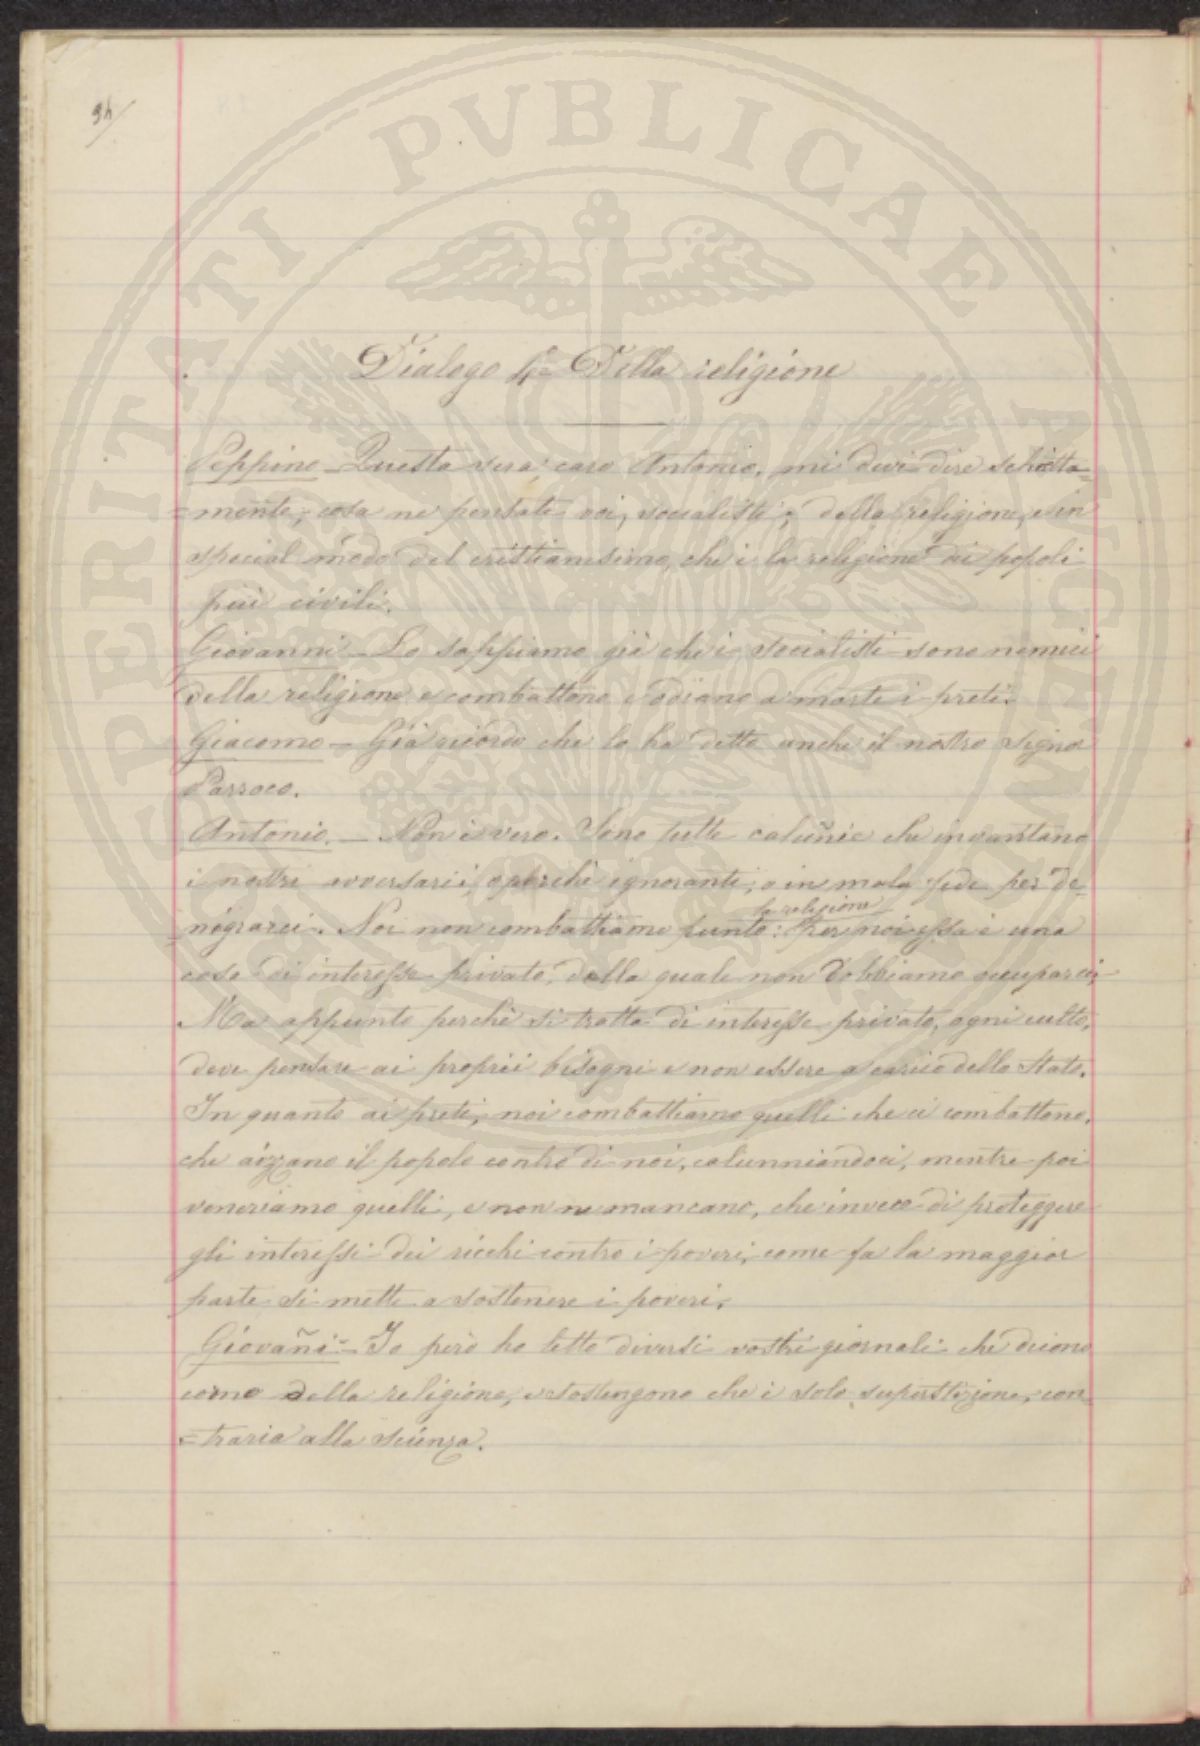 34/
PERITATI PUBLICAE
Dialogo 4º Della religione
Peppino – Questa sera, caro Antonio, mi devi dire schietta=
=mente, cosa ne pensate voi, socialisti, della religione, e in
special modo del cristianesimo, che è la religione dei popoli
più civili.
Giovanni – Lo sappiamo già che i socialisti sono nemici
della religione e combattono e odiano a morte i preti.
Giacomo – Già ricordo che lo ha detto anche il nostro signor
Parroco.
Antonio. – Non è vero. Sono tutte caluñie che inventano
i nostri avversarii, o perchè ignoranti, o in mala fede per de_
nigrarci. Noi non combattiamo punto la religione: Per noi essa è una
cosa di interesse privato, della quale non dobbiamo occuparci;
Ma appunto perchè si tratta di interesse privato, ogni culto,
deve pensare ai proprii bisogni e non essere a carico dello Stato.
In quanto ai preti, noi combattiamo quelli che ci combattono,
che aizzano il popolo contro di noi, calunniandoci, mentre poi
veneriamo quelli, e non ne mancano, che invece di proteggere
gli interessi dei ricchi contro i poveri, come fa la maggior
parte si mette a sostenere i poveri.
Giovañi – Io però ho letto diversi vostri giornali che dicono
corna della religione, e sostengono che è solo superstizione, con_
=traria alla scienza.